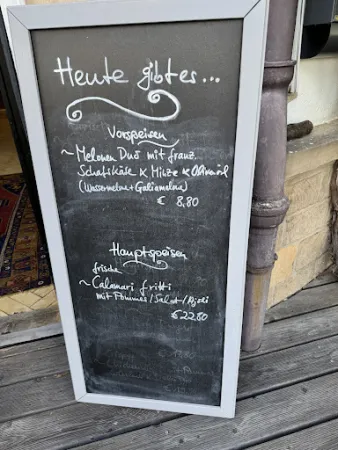 Heute gibt es...
Vorspeisen
~ Melonen Duo mit franz.
Schafskäse x Minze x Olivenöl
(Wassermelone + Galiamelone)
€ 8,80
Hauptspeisen
frische
~ Calamari fritti
mit Pommes/Salat/Ajoli
€ 22,80